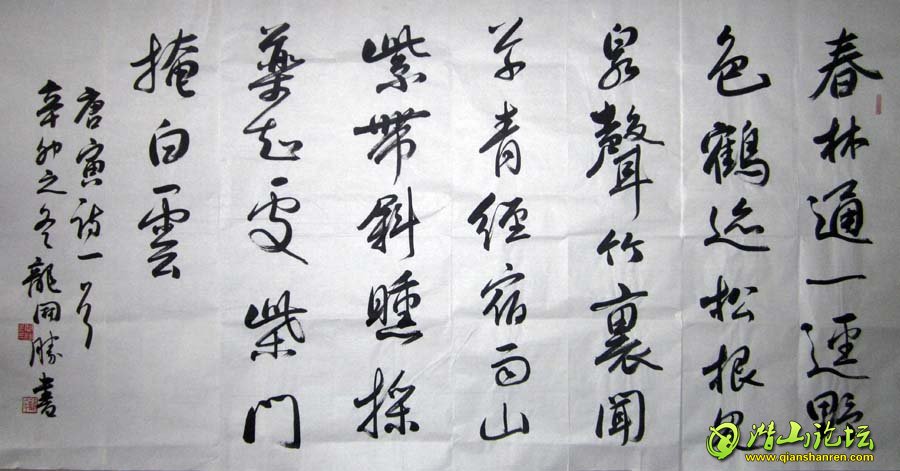 春林通一逕野
色鶴迹松根見
泉聲竹裏聞
草青經宿雨山
紫帶斜曛採
藥知處柴門
掩白雲
唐寅詩一首
辛卯之冬龍開勝書
潜山论坛
www.qianshanren.com